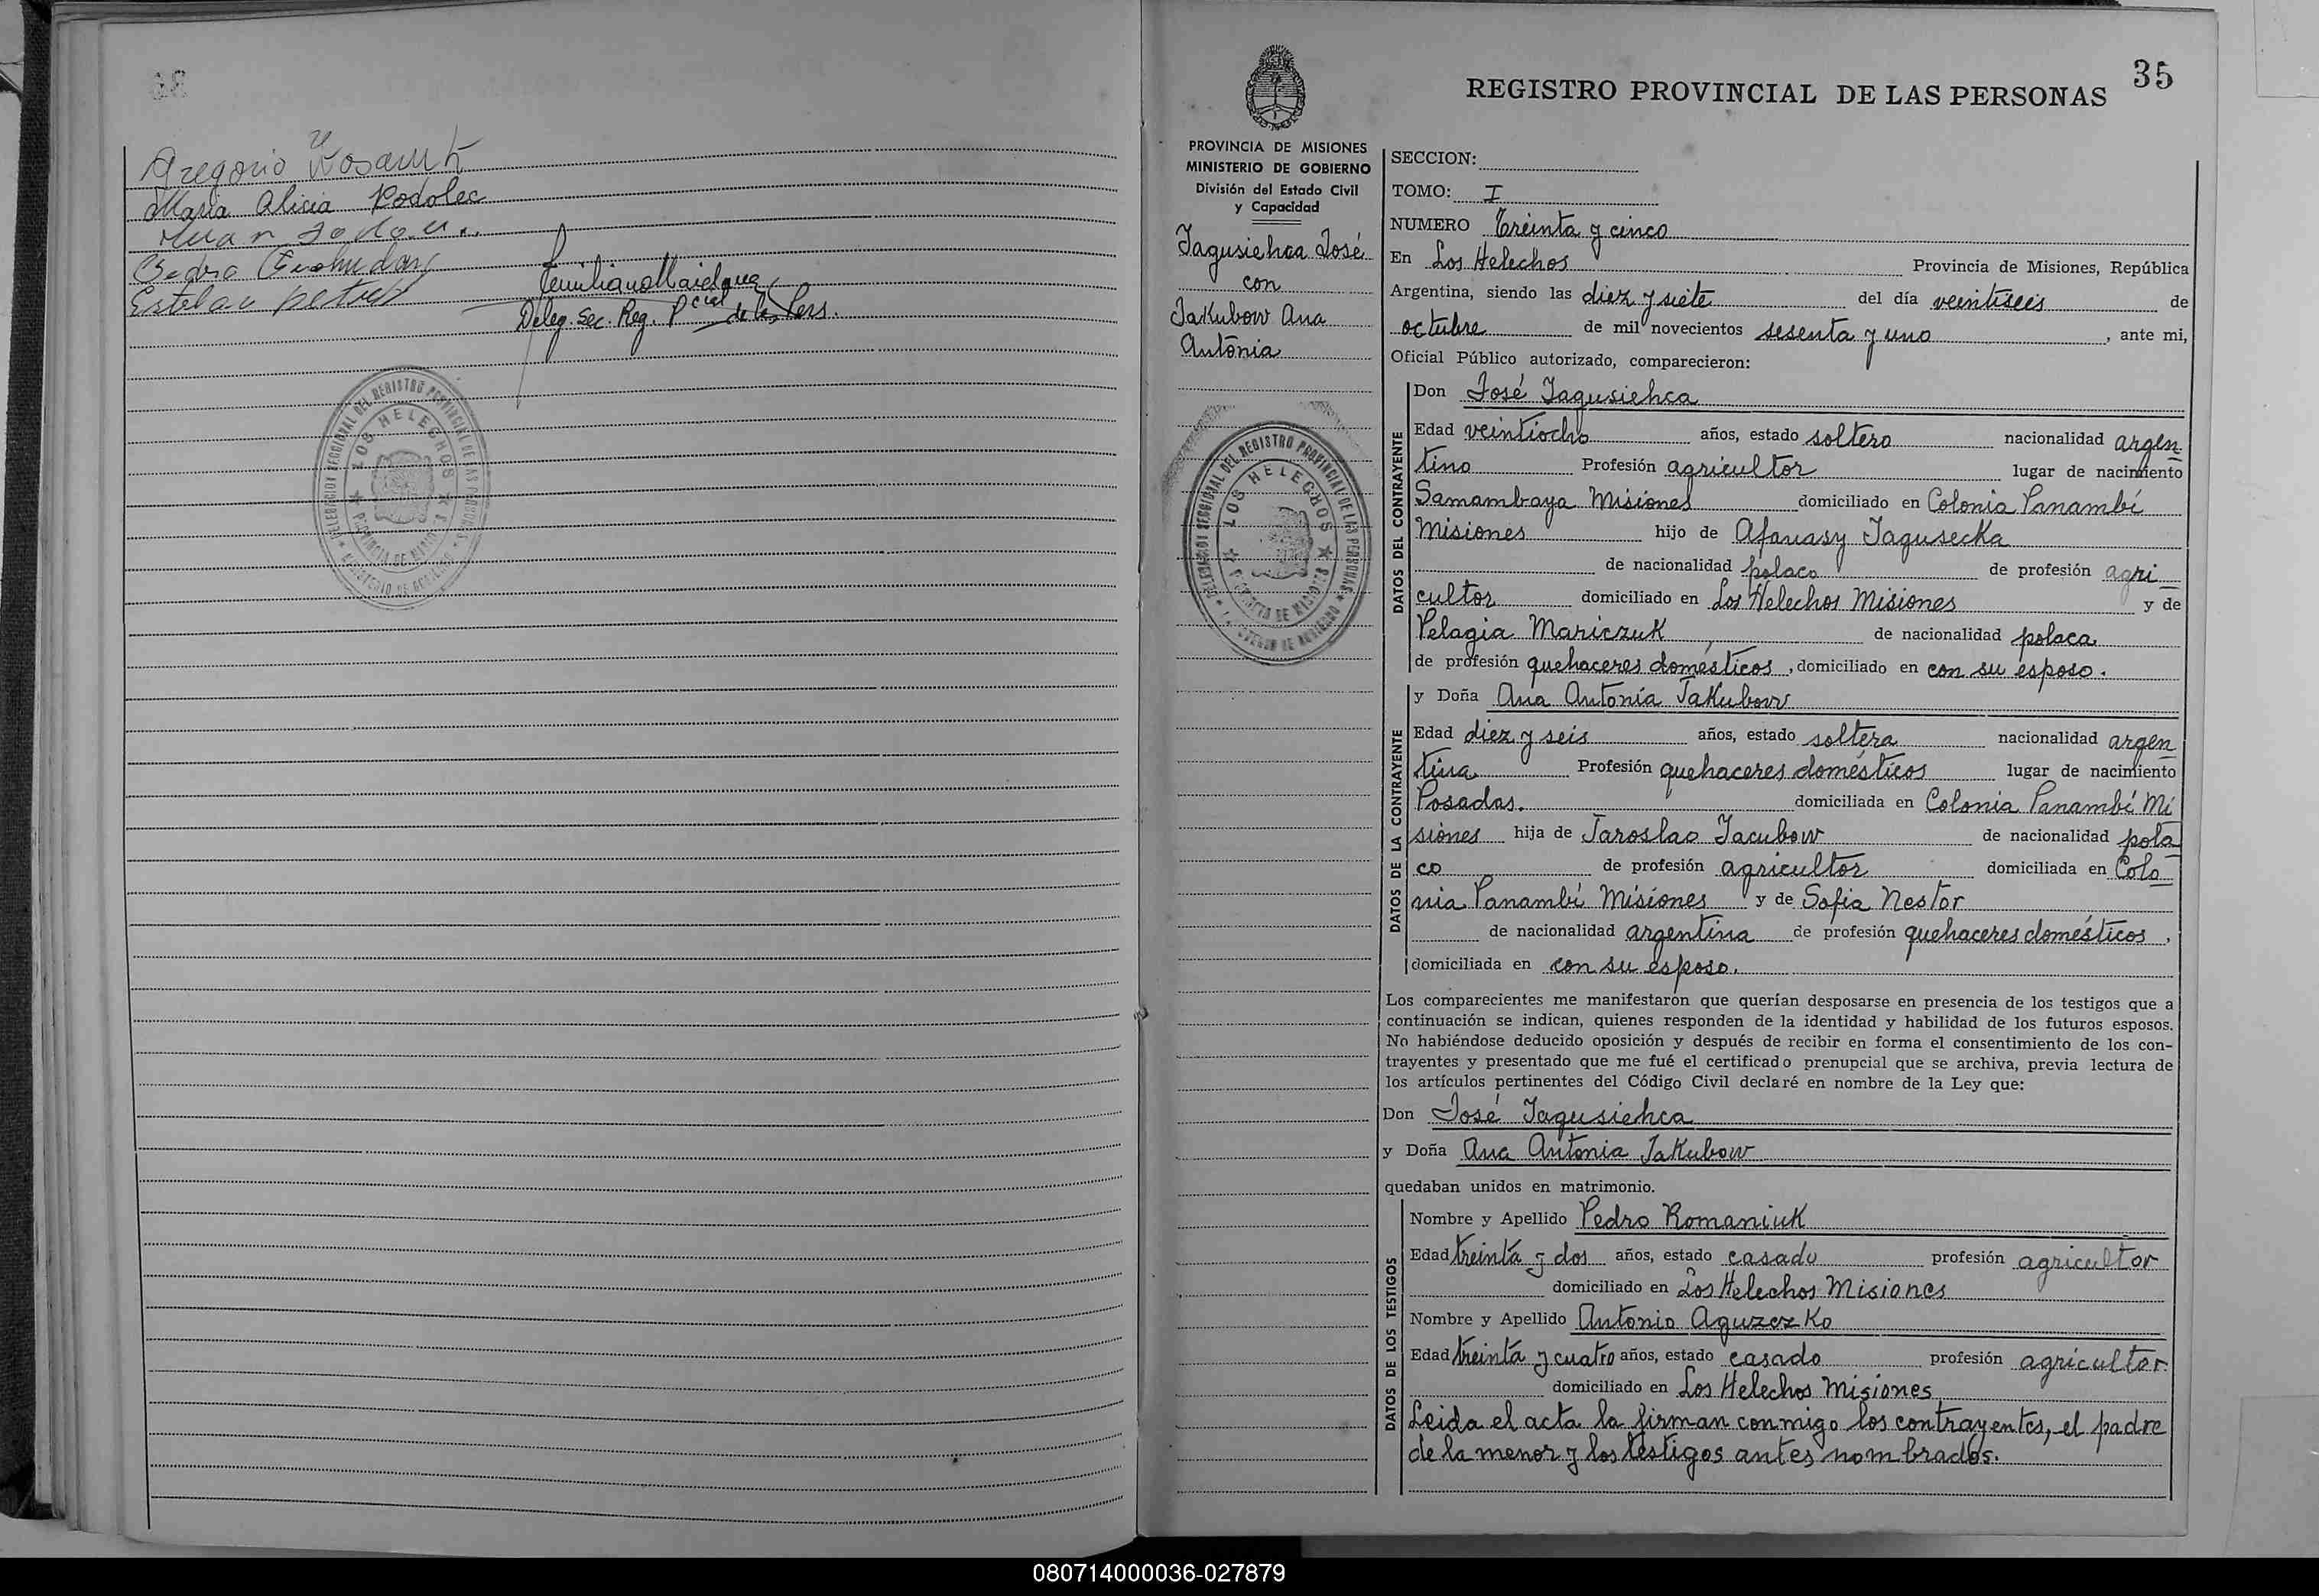 Gregorio
Maria Alicia Kodolec
Juan
Pedro
Estelan
Emiliano Maidana
Deleg. Sec. Reg. Pcial de las Pers.
DELEGACION SECCIONAL DEL REGISTRO PROVINCIAL DE LAS PERSONAS
LOS HELECHOS
PROVINCIA DE MISIONES
MINISTERIO DE GOBIERNO
35
REGISTRO PROVINCIAL DE LAS PERSONAS
PROVINCIA DE MISIONES
MINISTERIO DE GOBIERNO
División del Estado Civil
y Capacidad
Jagusiehca José
con
Jakubow Ana
Antonia
DELEGACION SECCIONAL DEL REGISTRO PROVINCIAL DE LAS PERSONAS
LOS HELECHOS
PROVINCIA DE MISIONES
MINISTERIO DE GOBIERNO
SECCION:
TOMO: I
NUMERO Treinta y cinco
En Los Helechos Provincia de Misiones, República
Argentina, siendo las diez y siete del día veintiseis de
octubre de mil novecientos sesenta y uno, ante mi,
Oficial Público autorizado, comparecieron:
DATOS DEL CONTRAYENTE
Don José Jagusiehca
Edad veintiocho años, estado soltero nacionalidad argen
tino Profesión agricultor lugar de nacimiento
Samambaya Misiones domiciliado en Colonia Panambí
Misiones hijo de Afanasy Jagusecka
de nacionalidad polaco de profesión agri
cultor domiciliado en Los Helechos Misiones y de
Pelagia Mariczuk de nacionalidad polaca
de profesión quehaceres domésticos, domiciliado en con su esposo.
DATOS DE LA CONTRAYENTE
y Doña Ana Antonia Jakubow
Edad diez y seis años, estado soltera nacionalidad argen
tina Profesión quehaceres domésticos lugar de nacimiento
Posadas. domiciliada en Colonia Panambí Mi
siones hija de Jaroslao Jacubow de nacionalidad pola
co de profesión agricultor domiciliada en Colo
nia Panambí Misiones y de Sofia Nestor
de nacionalidad argentina de profesión quehaceres domésticos,
domiciliada en con su esposo.
Los comparecientes me manifestaron que querían desposarse en presencia de los testigos que a
continuación se indican, quienes responden de la identidad y habilidad de los futuros esposos.
No habiéndose deducido oposición y después de recibir en forma el consentimiento de los con-
trayentes y presentado que me fué el certificado prenupcial que se archiva, previa lectura de
los artículos pertinentes del Código Civil declaré en nombre de la Ley que:
Don José Jagusiehca
y Doña Ana Antonia Jakubow
quedaban unidos en matrimonio.
DATOS DE LOS TESTIGOS
Nombre y Apellido Pedro Romaniuk
Edad treinta y dos años, estado casado profesión agricultor
domiciliado en Los Helechos Misiones
Nombre y Apellido Antonio Aguzezko
Edad treinta y cuatro años, estado casado profesión agricultor.
domiciliado en Los Helechos Misiones
Leida el acta la firman conmigo los contrayentes, el padre
de la menor y los testigos antes nombrados.
080714000036-027879